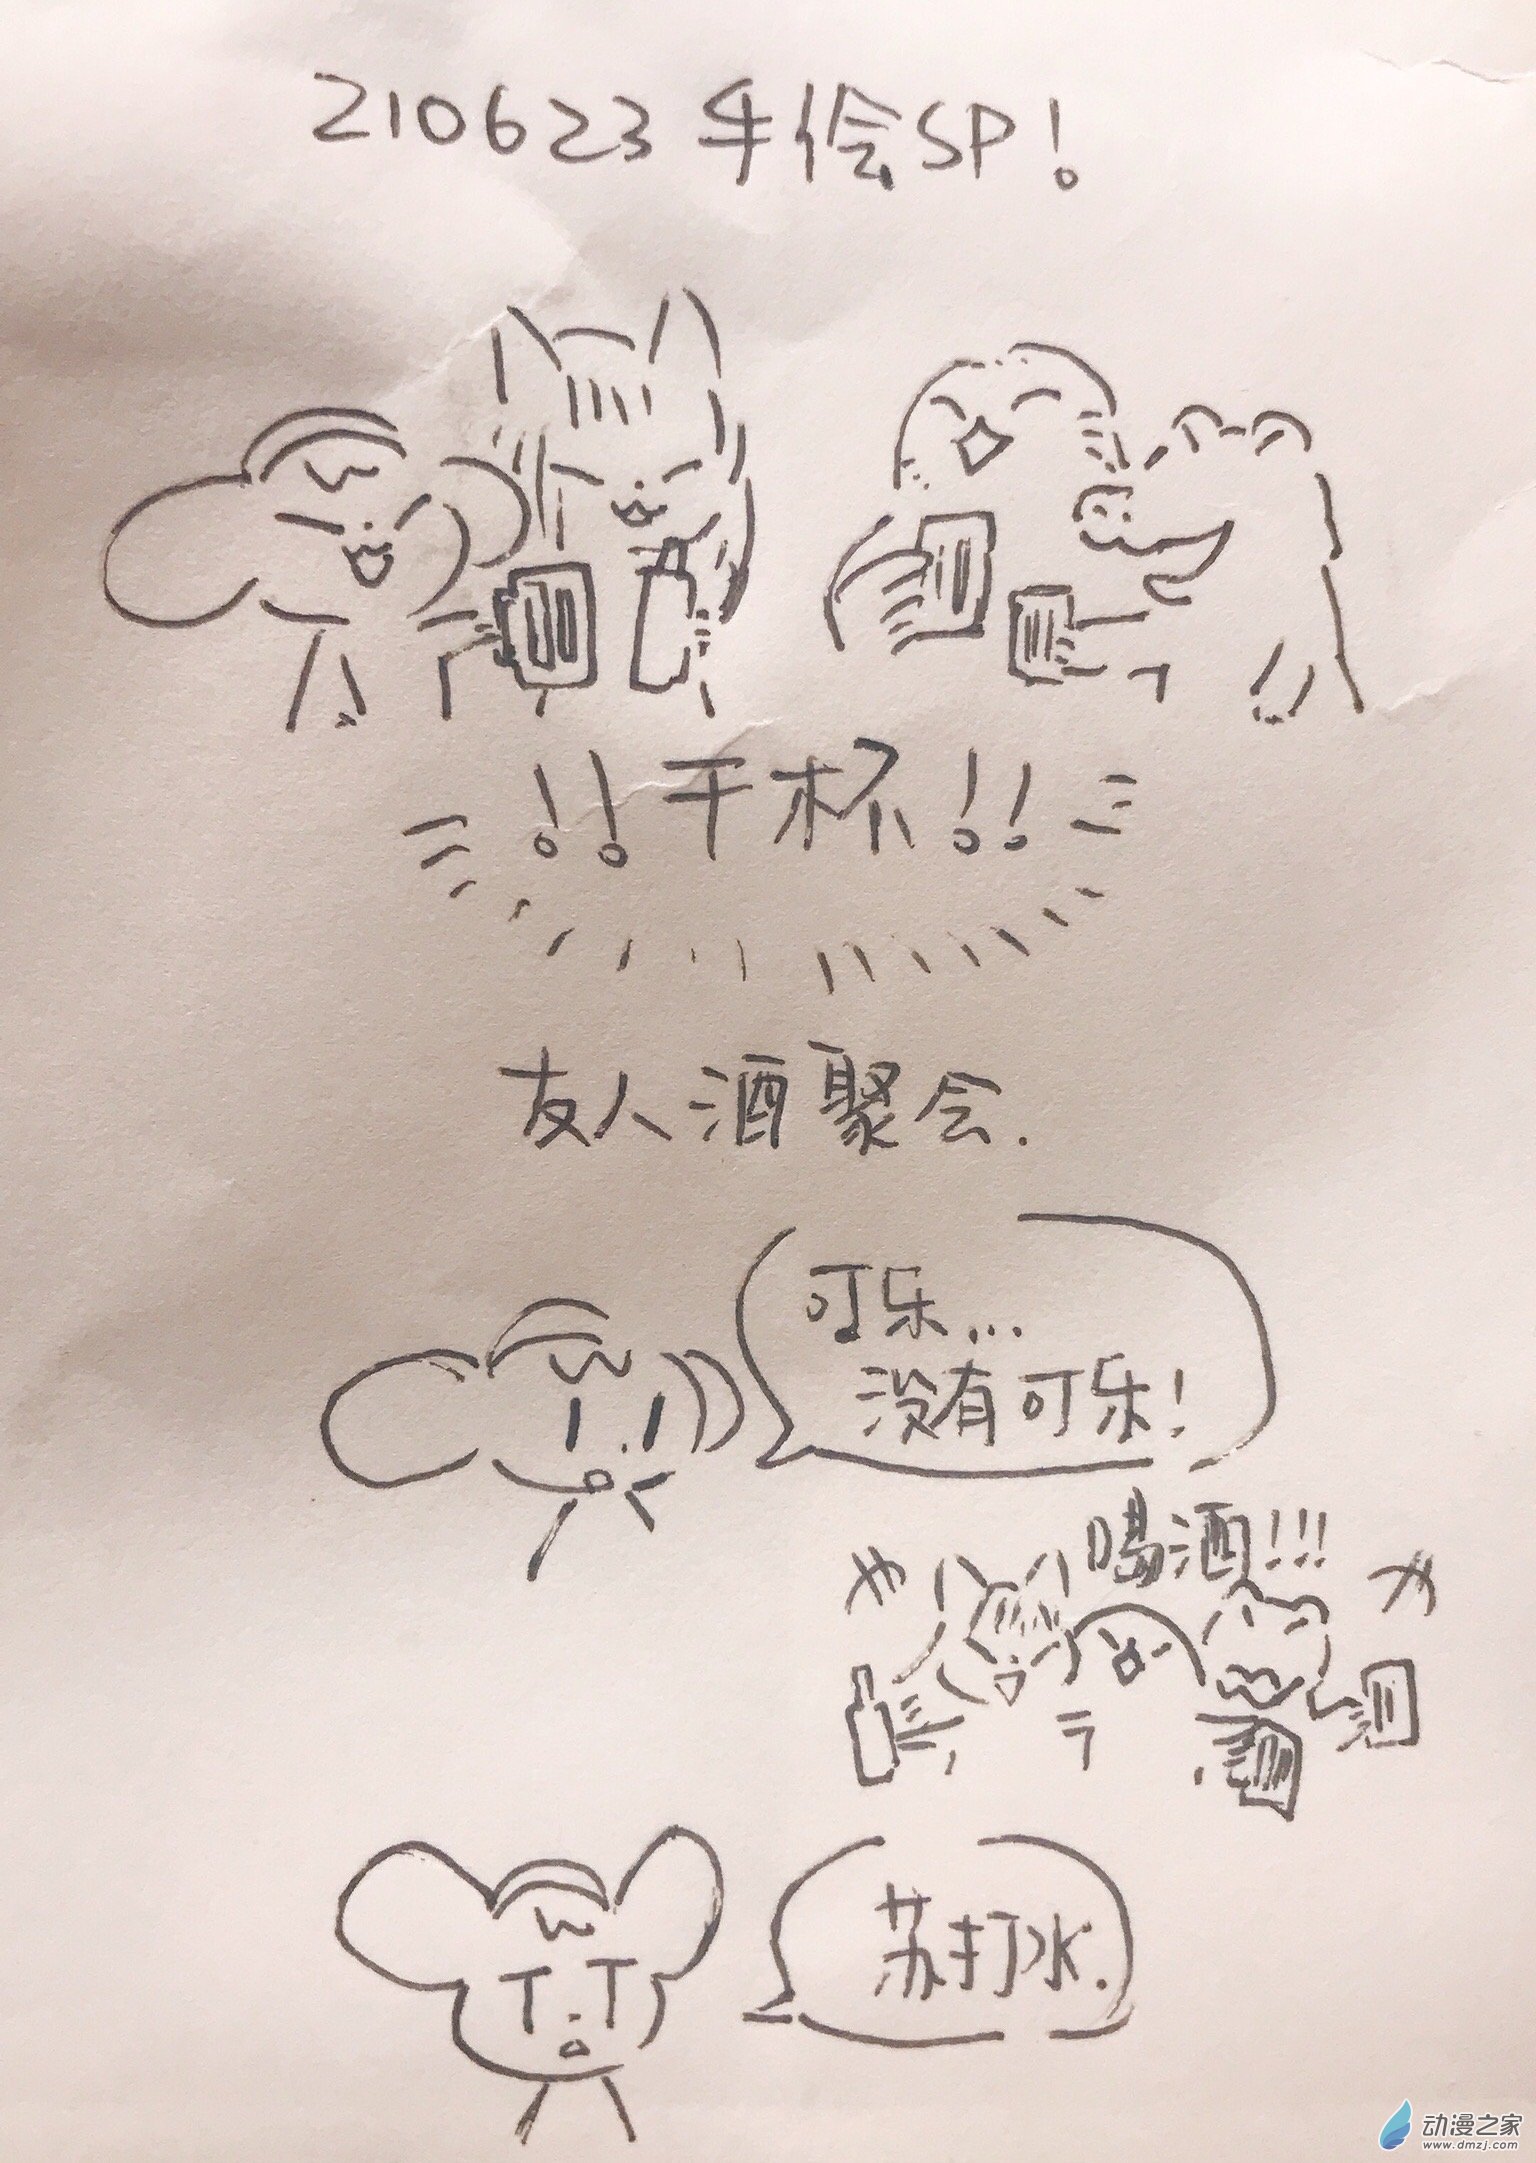 210623手绘SP!
!!干杯!!
友人酒聚会.
可乐...
没有可乐!
喝酒!!!
苏打水.
动漫之家
www.dmzj.com